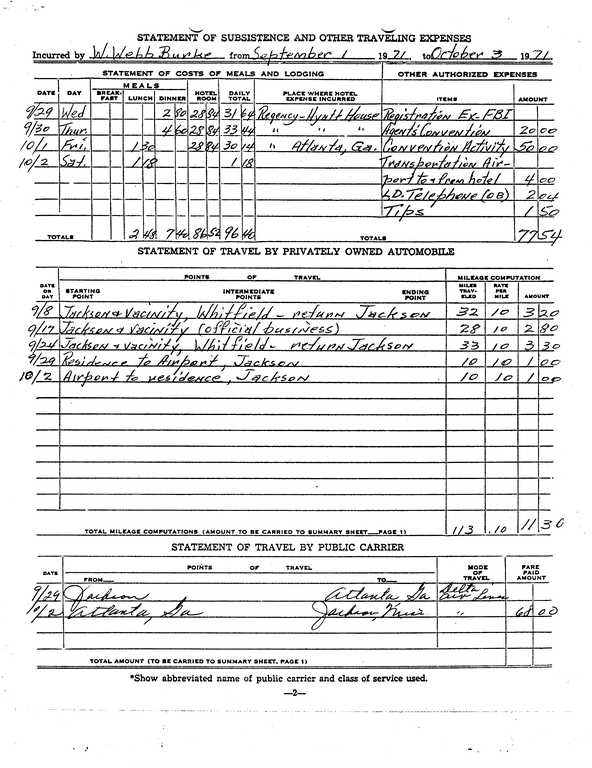 STATEMENT OF SUBSISTENCE AND OTHER TRAVELING EXPENSES
Incurred by W. Webb Burke from September 1 1971 to October 3 1971
STATEMENT OF COSTS OF MEALS AND LODGING OTHER AUTHORIZED EXPENSES
DATE DAY MEALS BREAKFAST LUNCH DINNER HOTEL ROOM DAILY TOTAL PLACE WHERE HOTEL EXPENSE INCURRED ITEMS AMOUNT
9/29 Wed 2 80 28 84 31 64 Regency-Hyatt House Registration Ex-FBI
9/30 Thur. 4 60 28 84 33 44 " " " Agents Convention 20 00
10/1 Fri. 1 30 28 84 30 14 " Atlanta, Ga. Convention Activity 50 00
10/2 Sat. 1 18 1 18 Transportation Air-
port to & from hotel 4 00
L.D. Telephone (OB) 2 04
Tips 1 50
TOTALS 2 48 7 40 86 52 96 40 TOTALS 77 54
STATEMENT OF TRAVEL BY PRIVATELY OWNED AUTOMOBILE
DATE OR DAY POINTS OF TRAVEL MILEAGE COMPUTATION
STARTING POINT INTERMEDIATE POINTS ENDING POINT MILES TRAVELED RATE PER MILE AMOUNT
9/8 Jackson & Vacinity, Whitfield - return Jackson 32 10 3 20
9/17 Jackson & vacinity (official business) 28 10 2 80
9/24 Jackson & vacinity, Whitfield - return Jackson 33 10 3 30
9/29 Residence to Airport, Jackson 10 10 1 00
10/2 Airport to residence, Jackson 10 10 1 00
TOTAL MILEAGE COMPUTATIONS (AMOUNT TO BE CARRIED TO SUMMARY SHEET—PAGE 1) 113 .10 11 30
STATEMENT OF TRAVEL BY PUBLIC CARRIER
DATE POINTS OF TRAVEL MODE OF TRAVEL FARE PAID AMOUNT
FROM— TO—
9/29 Jackson Atlanta Ga Delta Air Lines
10/2 Atlanta, Ga Jackson, Miss " 68 00
TOTAL AMOUNT (TO BE CARRIED TO SUMMARY SHEET, PAGE 1)
*Show abbreviated name of public carrier and class of service used.
—2—